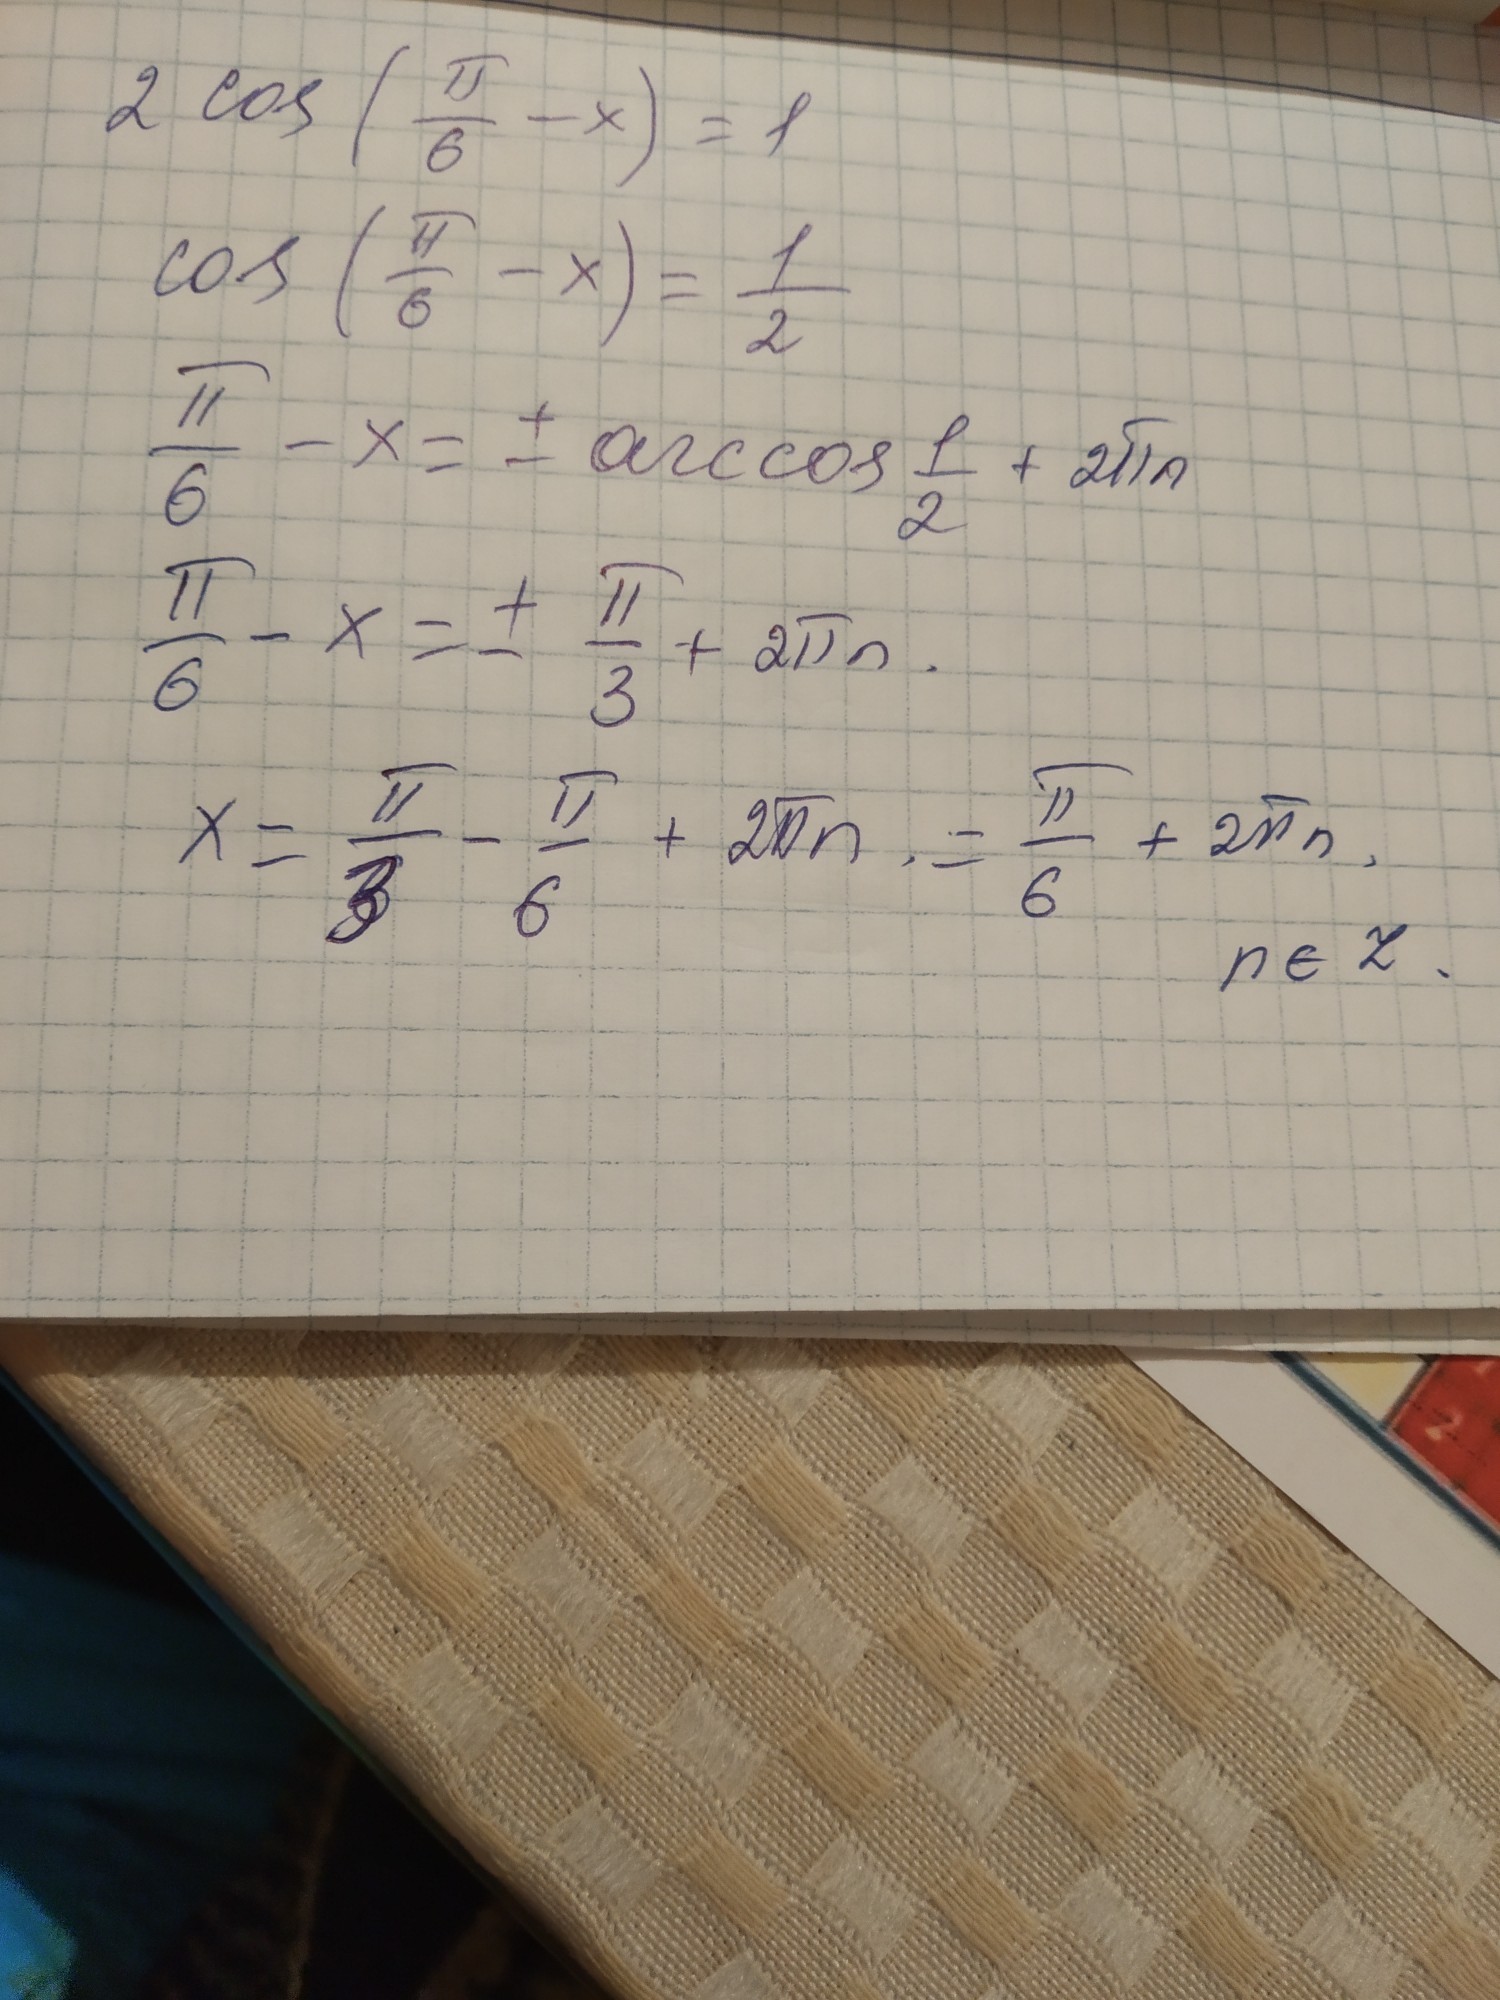 2 cos (π/6 - x) = 1
cos (π/6 - x) = 1/2
π/6 - x = ± arccos 1/2 + 2πn
π/6 - x = ± π/3 + 2πn.
x = π/3 - π/6 + 2πn. = π/6 + 2πn,
n ∈ Z.